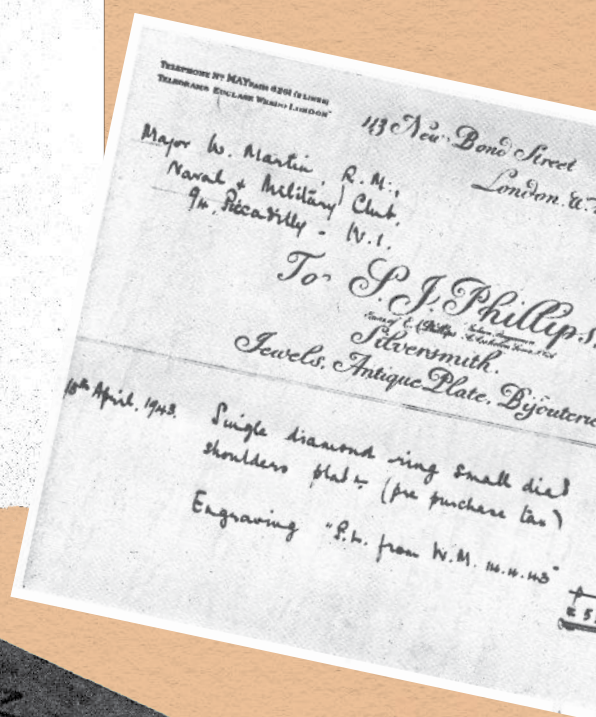 TELEPHONE Nº MAYFAIR 6261 (2 LINES)
TELEGRAMS EUCLASE WESDO LONDON"
113 New Bond Street
London. W.
Major W. Martin, R.M.,
Naval & Military Club,
94, Piccadilly - W.1.
To S. J. Phillips.
Silversmith.
Jewels. Antique Plate. Bijouterie
April, 1943.
Single diamond ring small diad
shoulders plat (pre purchase tax)
Engraving "P.L. from W.M. 14.4.43"